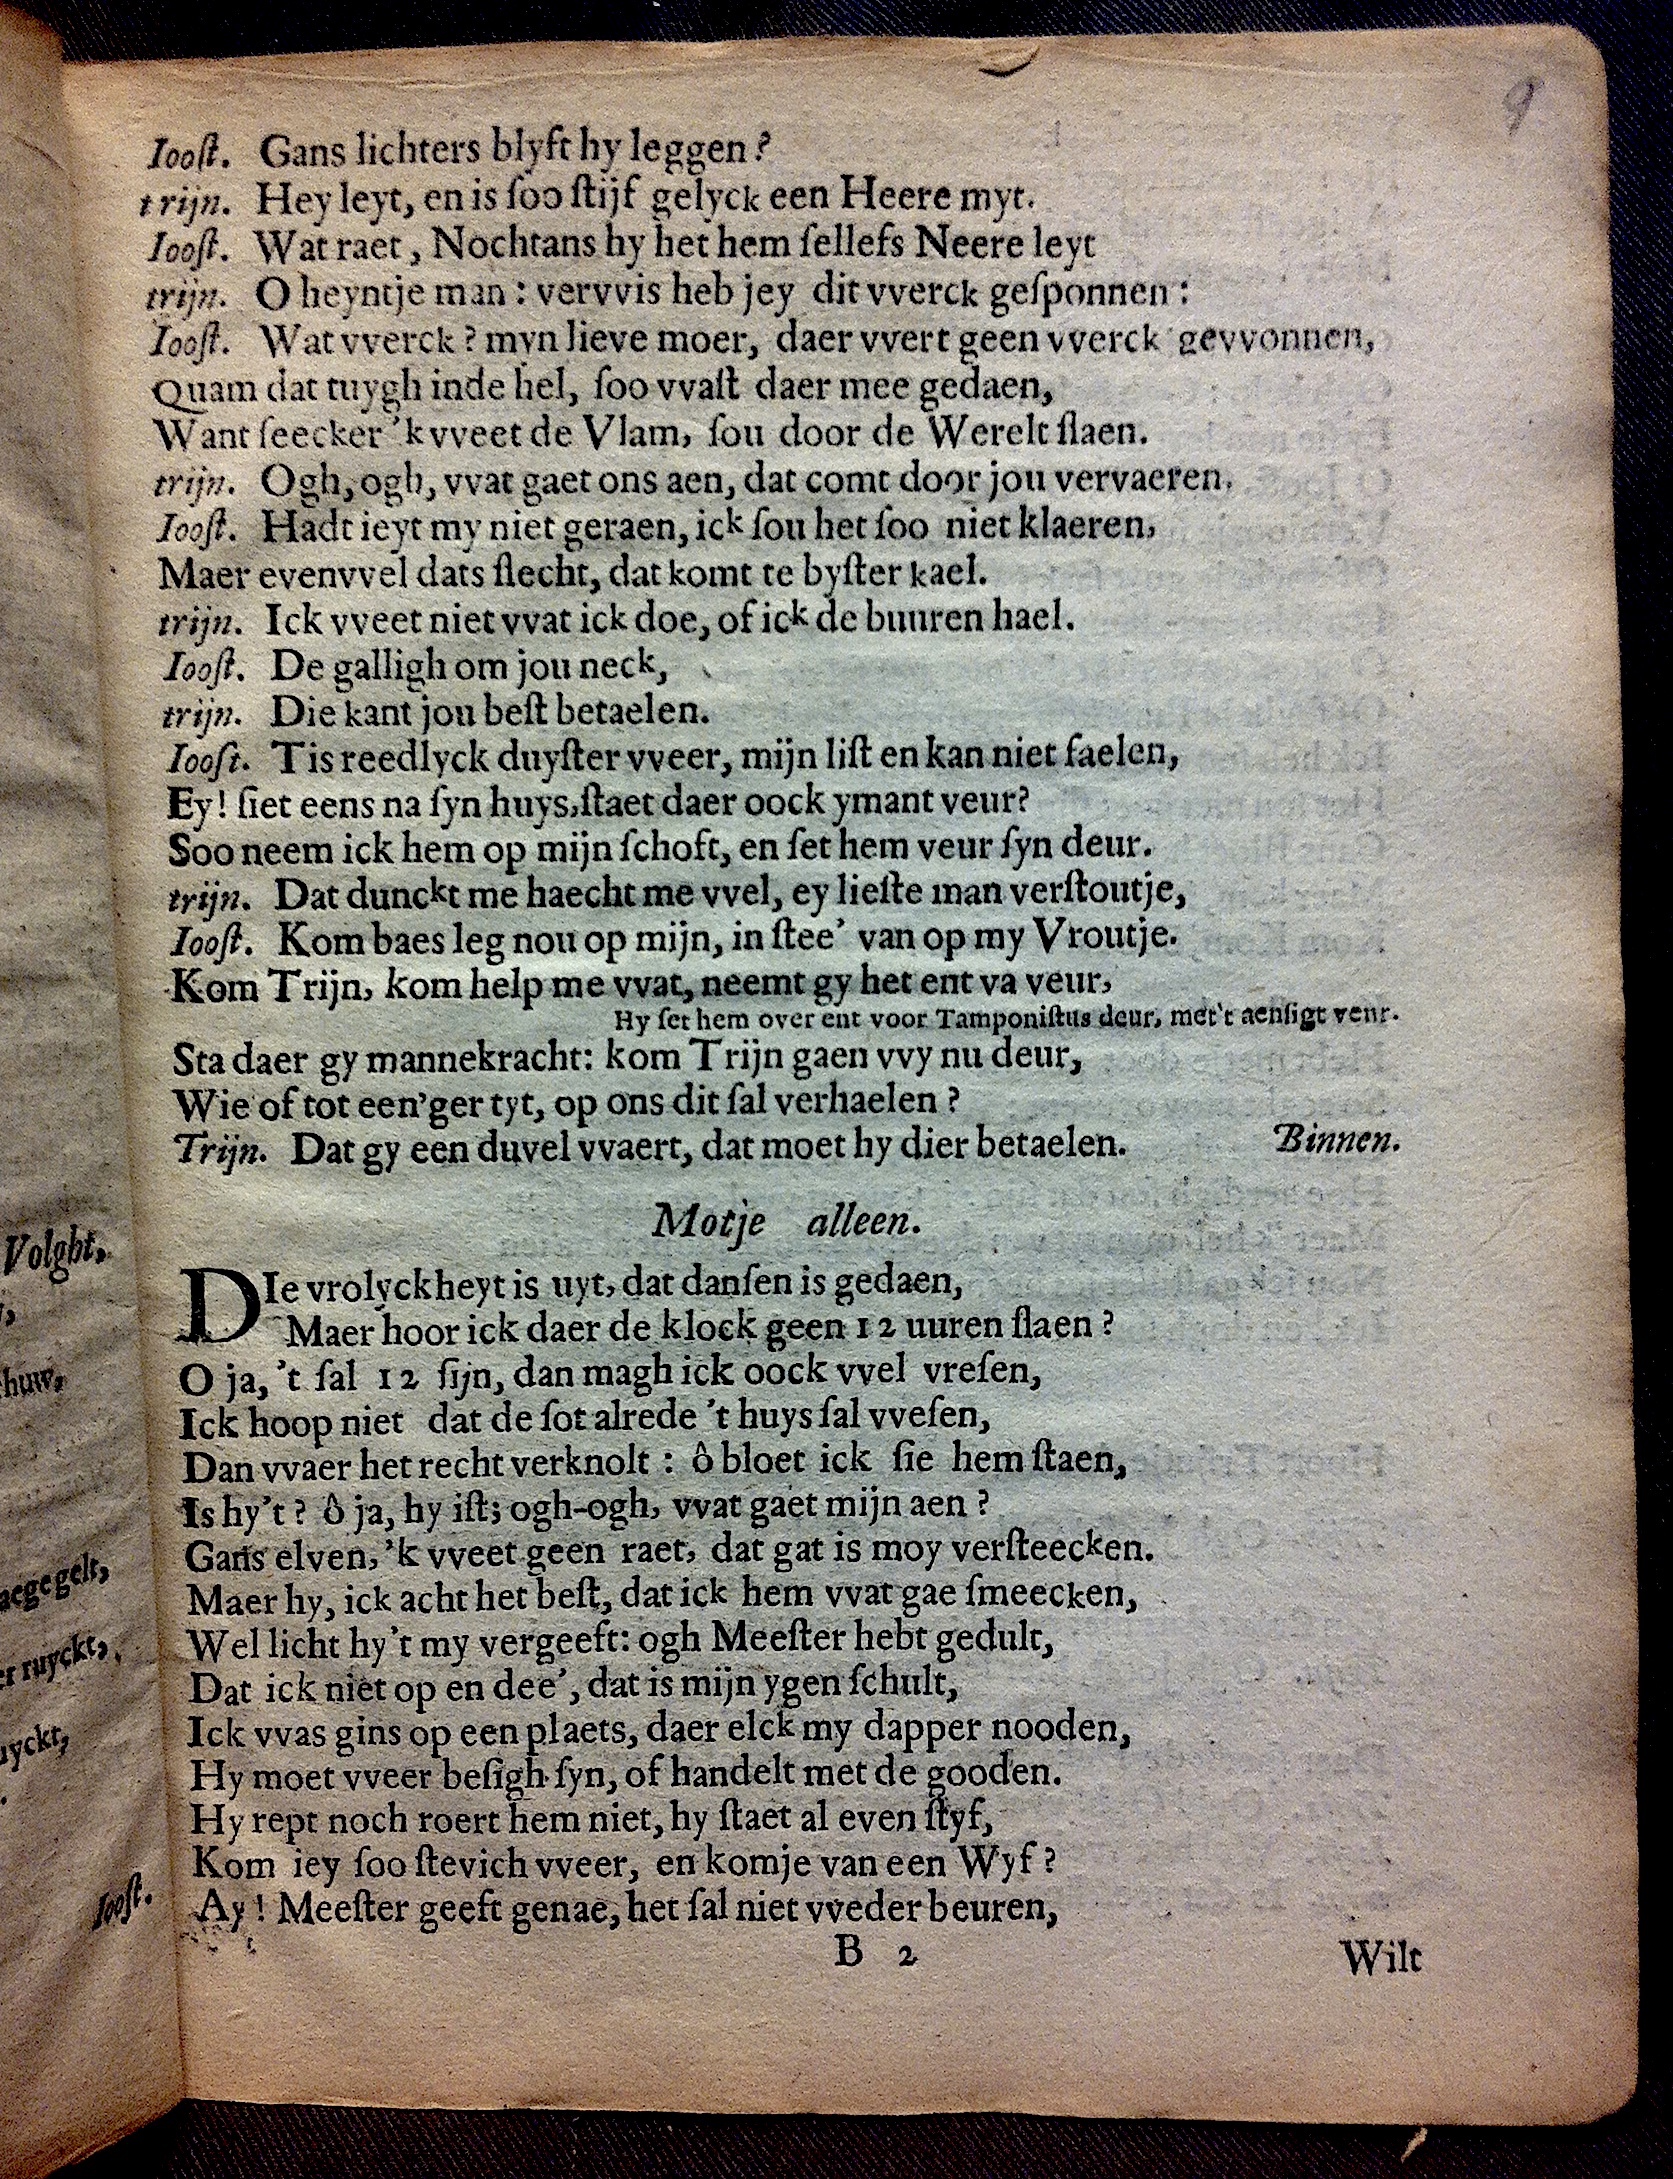 9
Iooſt. Gans lichters blyft hy leggen?
trijn. Hey leyt, en is ſoo ſtijf gelyck een Heere myt.
Iooſt. Wat raet, Nochtans hy het hem ſellefs Neere leyt
trijn. O heyntje man: vervvis heb jey dit vverck geſponnen:
Iooſt. Wat vverck? myn lieve moer, daer vvert geen vverck gevvonnen,
Quam dat tuygh inde hel, ſoo vvaſt daer mee gedaen,
Want ſeecker 'k vveet de Vlam, ſou door de Werelt ſlaen.
trijn. Ogh, ogh, vvat gaet ons aen, dat comt door jou vervaeren.
Iooſt. Hadt ieyt my niet geraen, ick ſou het ſoo niet klaeren,
Maer evenvvel dats ſlecht, dat komt te byſter kael.
trijn. Ick vveet niet vvat ick doe, of ick de buuren hael.
Iooſt. De galligh om jou neck,
trijn. Die kant jou beſt betaelen.
Iooſt. Tis reedlyck duyſter vveer, mijn liſt en kan niet faelen,
Ey! ſiet eens na ſyn huys, ſtaet daer oock ymant veur?
Soo neem ick hem op mijn ſchoft, en ſet hem veur ſyn deur.
trijn. Dat dunckt me haecht me vvel, ey lieſte man verſtoutje,
Iooſt. Kom baes leg nou op mijn, in ſtee' van op my Vroutje.
Kom Trijn, kom help me vvat, neemt gy het ent va veur,
Hy ſet hem over ent voor Tamponiſtus deur, met't aenſigt veur.
Sta daer gy mannekracht: kom Trijn gaen vvy nu deur,
Wie of tot een'ger tyt, op ons dit ſal verhaelen?
Trijn. Dat gy een duvel vvaert, dat moet hy dier betaelen. Binnen.
Motje alleen.
DIe vrolyckheyt is uyt, dat danſen is gedaen,
Maer hoor ick daer de klock geen 12 uuren ſlaen?
O ja, 't ſal 12 ſijn, dan magh ick oock vvel vreſen,
Ick hoop niet dat de ſot alrede 't huys ſal vveſen,
Dan vvaer het recht verknolt: ô bloet ick ſie hem ſtaen,
Is hy't? ô ja, hy iſt; ogh-ogh, vvat gaet mijn aen?
Gans elven, 'k vveet geen raet, dat gat is moy verſteecken.
Maer hy, ick acht het beſt, dat ick hem vvat gae ſmeecken,
Wel licht hy't my vergeeft: ogh Meeſter hebt gedult,
Dat ick niet op en dee', dat is mijn ygen ſchult,
Ick vvas gins op een plaets, daer elck my dapper nooden,
Hy moet vveer beſigh ſyn, of handelt met de gooden.
Hy rept noch roert hem niet, hy ſtaet al even ſtyf,
Kom iey ſoo ſtevich vveer, en komje van een Wyf?
Ay! Meeſter geeft genae, het ſal niet vveder beuren,
B 2 Wilt
Volght,
huw,
aegegelt,
er ruyckt,
uyckt,
Iooſt.